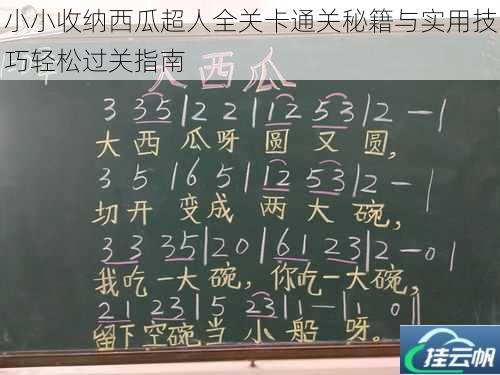 小小收纳西瓜超人全关卡通关秘籍与实用技
巧轻松过关指南
大西瓜
3 3 5|2 2 2 1|1 2 5 3|2 - 1
大西瓜呀圆又圆,
3 5 1 6 5|1 2 5 3|2 - |
切开变成两大碗,
3 3 3 5|2 0|6 1 2 3|2 - 0 1
我吃一大碗,你吃一大碗,
2 1 2 3|5 2 3|1 - |1 0||
留下空碗当小船呀。
挂云帆